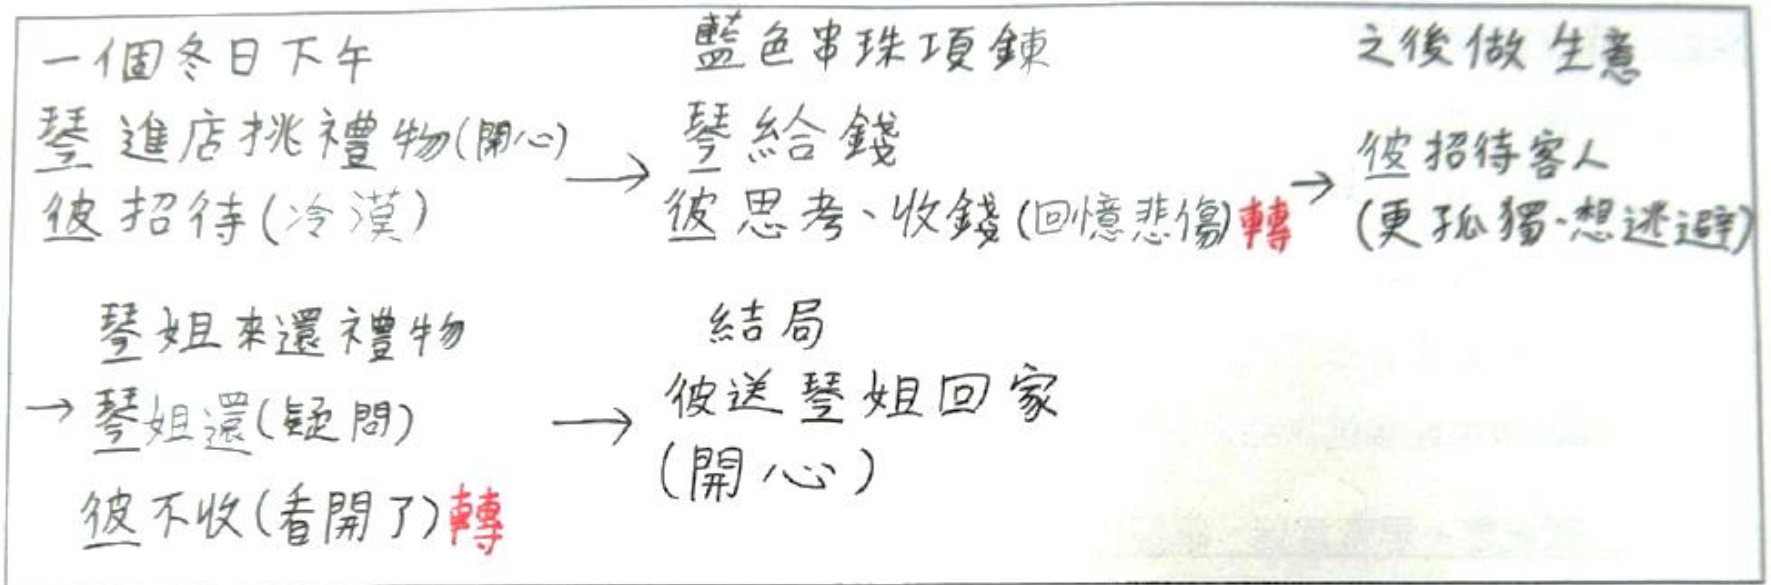 一個冬日下午
琴進店挑禮物(開心)
彼招待(冷漠)
→
藍色串珠項鍊
琴給錢
彼思考、收錢(回憶悲傷)轉
→
之後做生意
彼招待客人
(更孤獨、想逃避)
→
琴姐來還禮物
琴姐還(疑問)
彼不收(看開了)轉
→
結局
彼送琴姐回家
(開心)